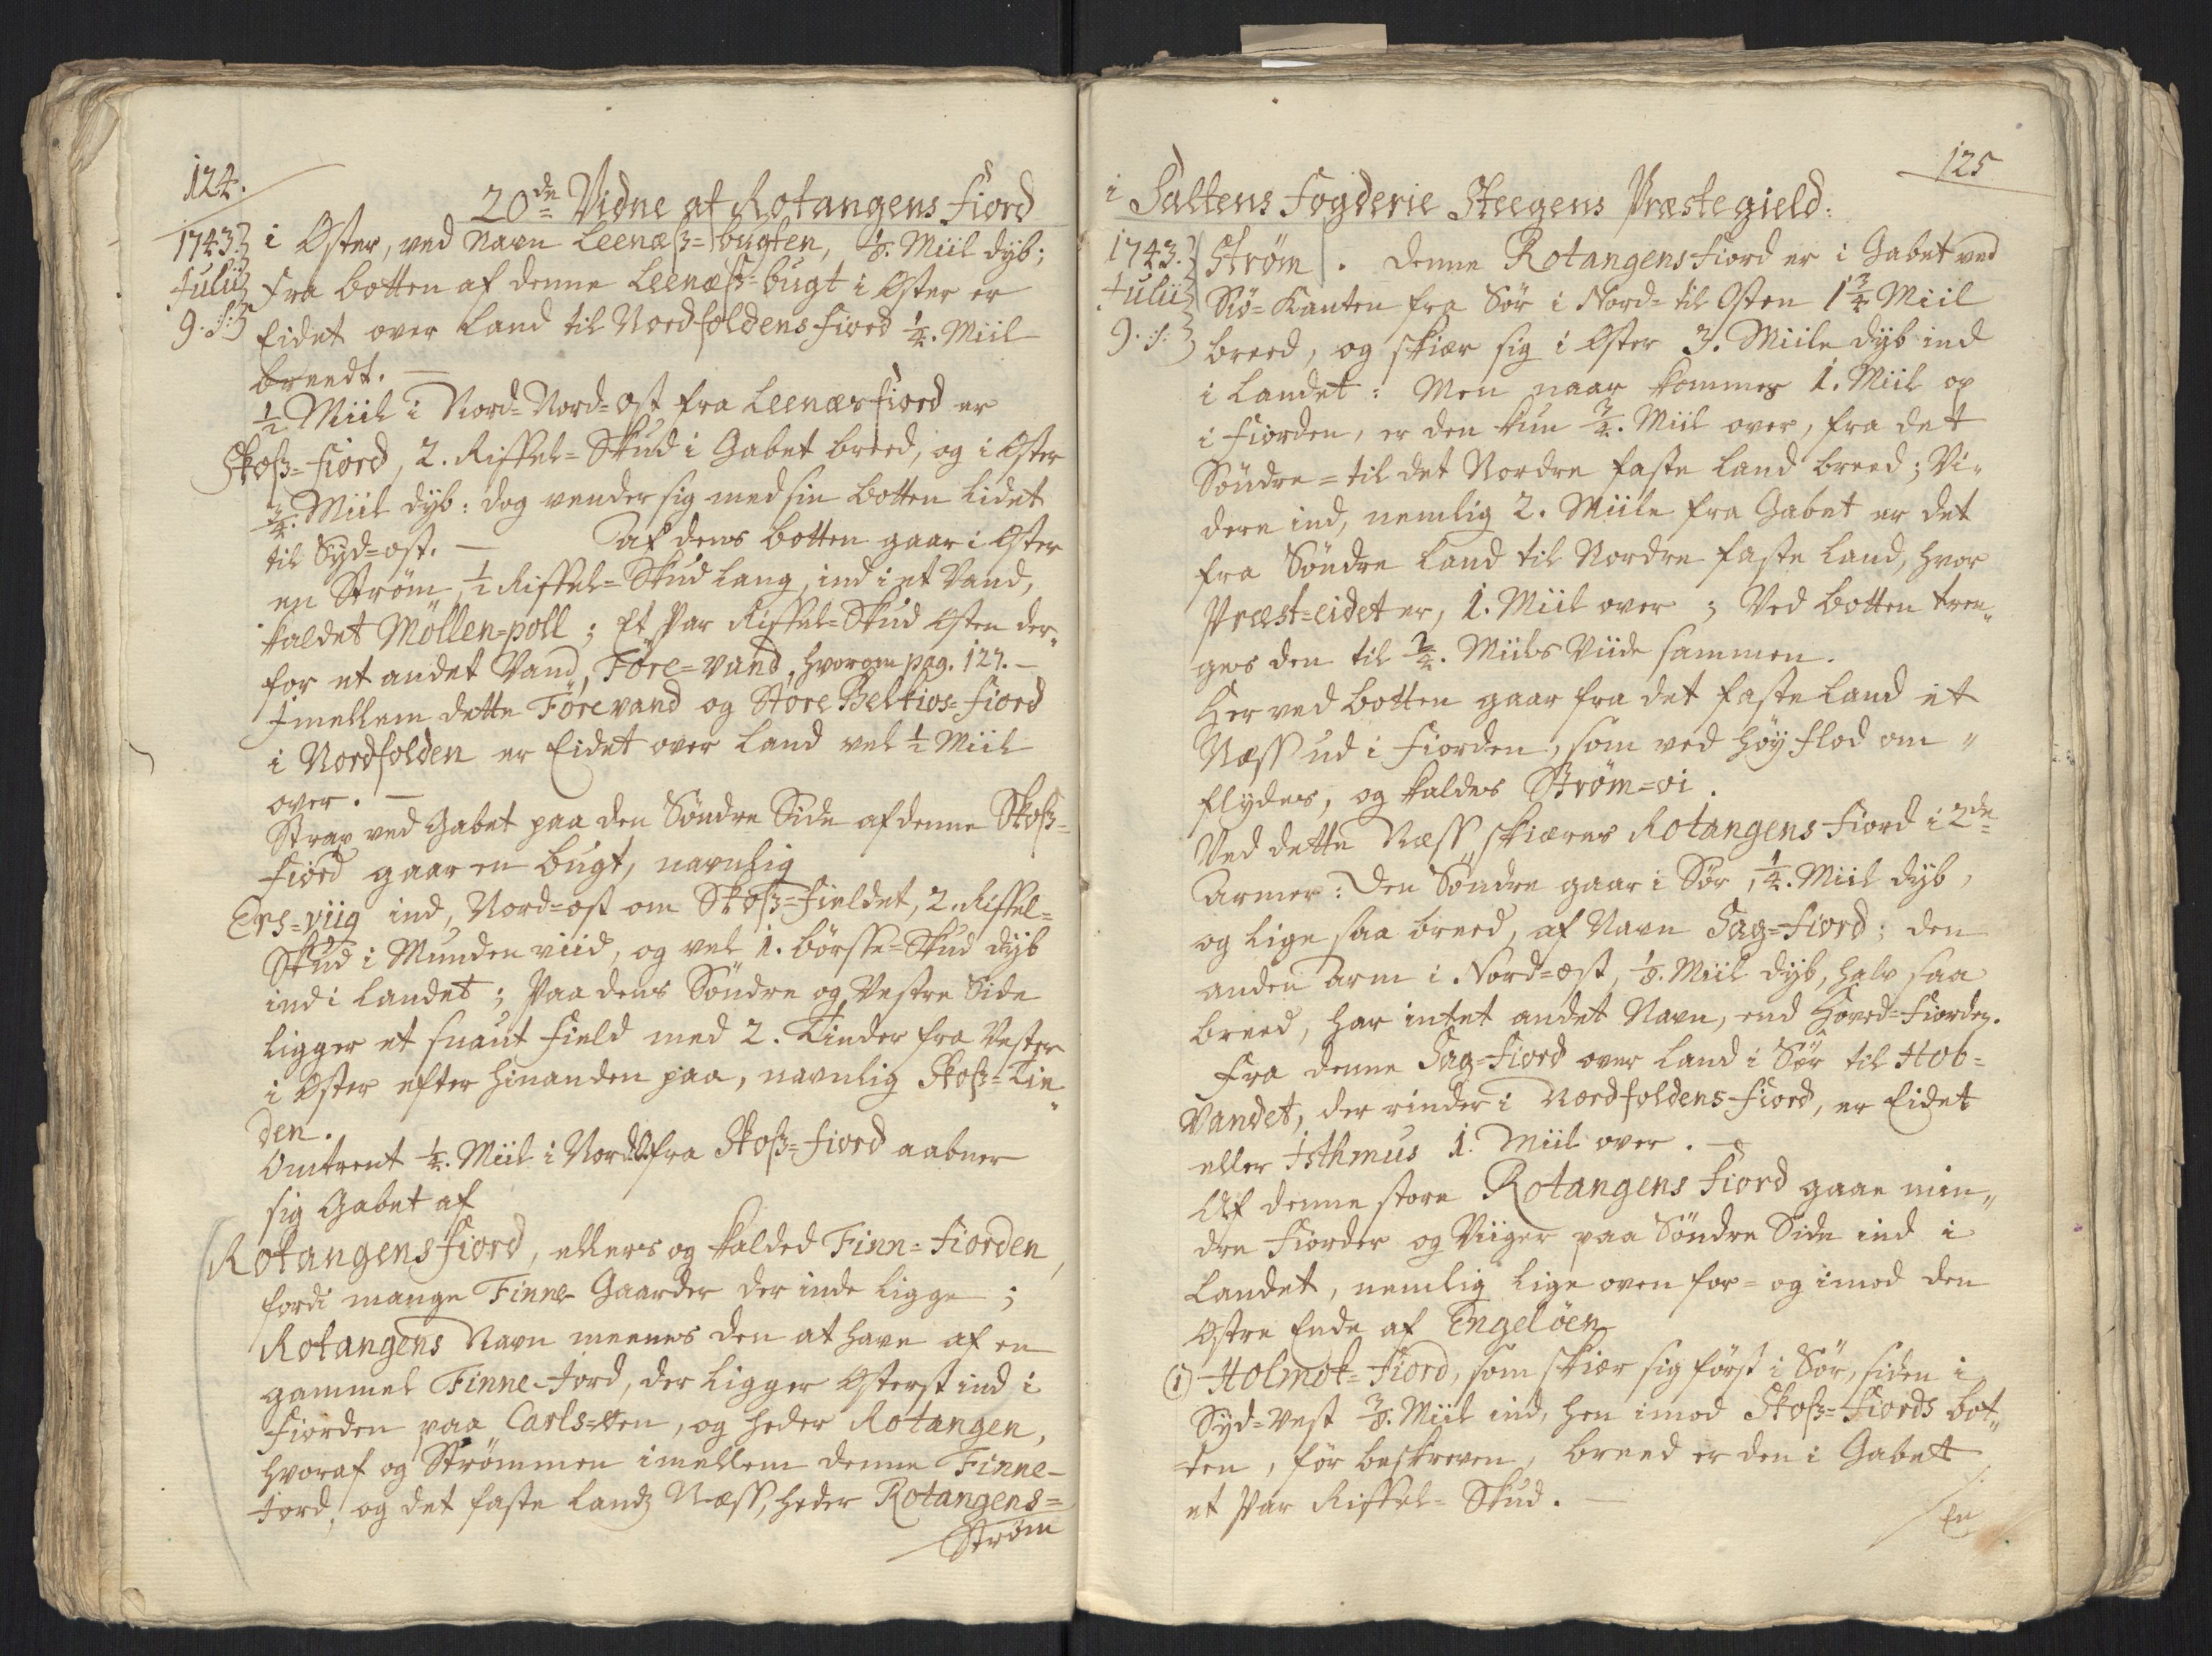 124.
20de Vidne af Rotangens Fiord
1743. i Øster, ved Navn Leenæss=bugten, 1/8. Miil dyb;
Julii fra botten af denne Leenæss=bugt i Øster er
9. s: Eidet over Land til Nordfoldens-Fiord 1/4. Miil
breedt. —
1/2 Miil i Nord=Nord=Ost fra Leenæs Fiord er
Skoss=Fiord, 2. Riffel=Skud i Gabet breed, og i Øster
3/4. Miil dyb: dog vender sig med sin botten lidet
til Syd=ost. — Af dens botten gaar i Øster
en Strøm, 1/2 Riffel=Skud lang, ind i et Vand,
kaldet Möllen=poll; Et Par Riffel=Skud Østen der„
for et andet Vand, Före=vand, hvorom pag. 127. —
Imellem dette Förevand og Store Belkios=Fiord
i Nordfolden er Eidet over Land vel 1/2 Miil
over. —
Strax ved Gabet paa den Söndre Side af denne Skoss=
Fiord gaar en bugt, navnlig
Ers=viig ind, Nord=ost om Skoss=Fieldet, 2. Riffel=
Skud i Munden viid, og vel 1. börsse=Skud dyb
ind i Landet; Paa dens Söndre og Vestre Side
ligger et snaut Field med 2. Tinder fra Vester
i Øster efter hinanden paa, navnlig Skoss=Tin„
den.
Omtrent 1/4. Miil i Nord fra Skoss=Fiord aabner
sig Gabet af
Rotangensfiord, ellers og kalded Finn=Fiorden,
fordi mange Finne-Gaarder der inde ligge;
Rotangens Navn meenes den at have af en
gammel Finne-Jord, der ligger Østerst ind i
Fiorden paa Carls=øen, og heder Rotangen,
hvoraf og Strömmen imellem denne Finne-
Jord, og det faste Lands Næss, heder Rotangens=
Strøm
125
i Saltens Fogderie Steegens Præstegield:
1743. Strøm. Denne Rotangensfiord er i Gabet ved
Julii Siö=Kanten fra Sör i Nord= til Osten 1 3/4 Miil
9. s: breed, og skiær sig i Øster 3. Miile dyb ind
i Landet: Men naar kommes 1. Miil op
i Fiorden, er den kun 3/4. Miil over, fra det
Söndre= til det Nordre faste Land breed; Vi„
dere ind, nemlig 2. Miile fra Gabet er det
fra Söndre Land til Nordre faste Land, hvor
Præst=eidet er, 1. Miil over; Ved botten tren„
ges den til 3/4. Miils Viide sammen.
Her ved botten gaar fra det faste Land et
Næss ud i Fiorden, som ved höy flod om„
flydes, og kaldes Strøm=øi.
Ved dette Næss skiæres Rotangens Fiord i 2de
Armer: Den Söndre gaar i Sör, 1/4. Miil dyb,
og lige saa breed, af Navn Sag=Fiord; den
anden Arm i Nord=ost, 1/8. Miil dyb, halv saa
breed, har intet andet Navn, end Hoved=Fiorden.
Fra denne Sag=Fiord over Land i Sör til Hob=
Vandet, der rinder i Nordfoldens-Fiord, er Eidet
eller Isthmus 1. Miil over. —
Af denne store Rotangens Fiord gaae min„
dre Fiorder og Viiger paa Söndre Side ind i
Landet, nemlig lige oven for= og imod den
Østre Ende af Engelöen
1) Holmok=Fiord, som skiær sig först i Sör, siden i
Syd=Vest 3/8. Miil ind, hen imod Skoss=Fiords bot„
=ten, för beskreven, breed er den i Gabet
et Par Riffel=Skud. —
En